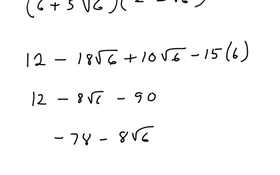 (6 + 5√6)(2 - √6)
12 - 18√6 + 10√6 - 15(6)
12 - 8√6 - 90
-78 - 8√6